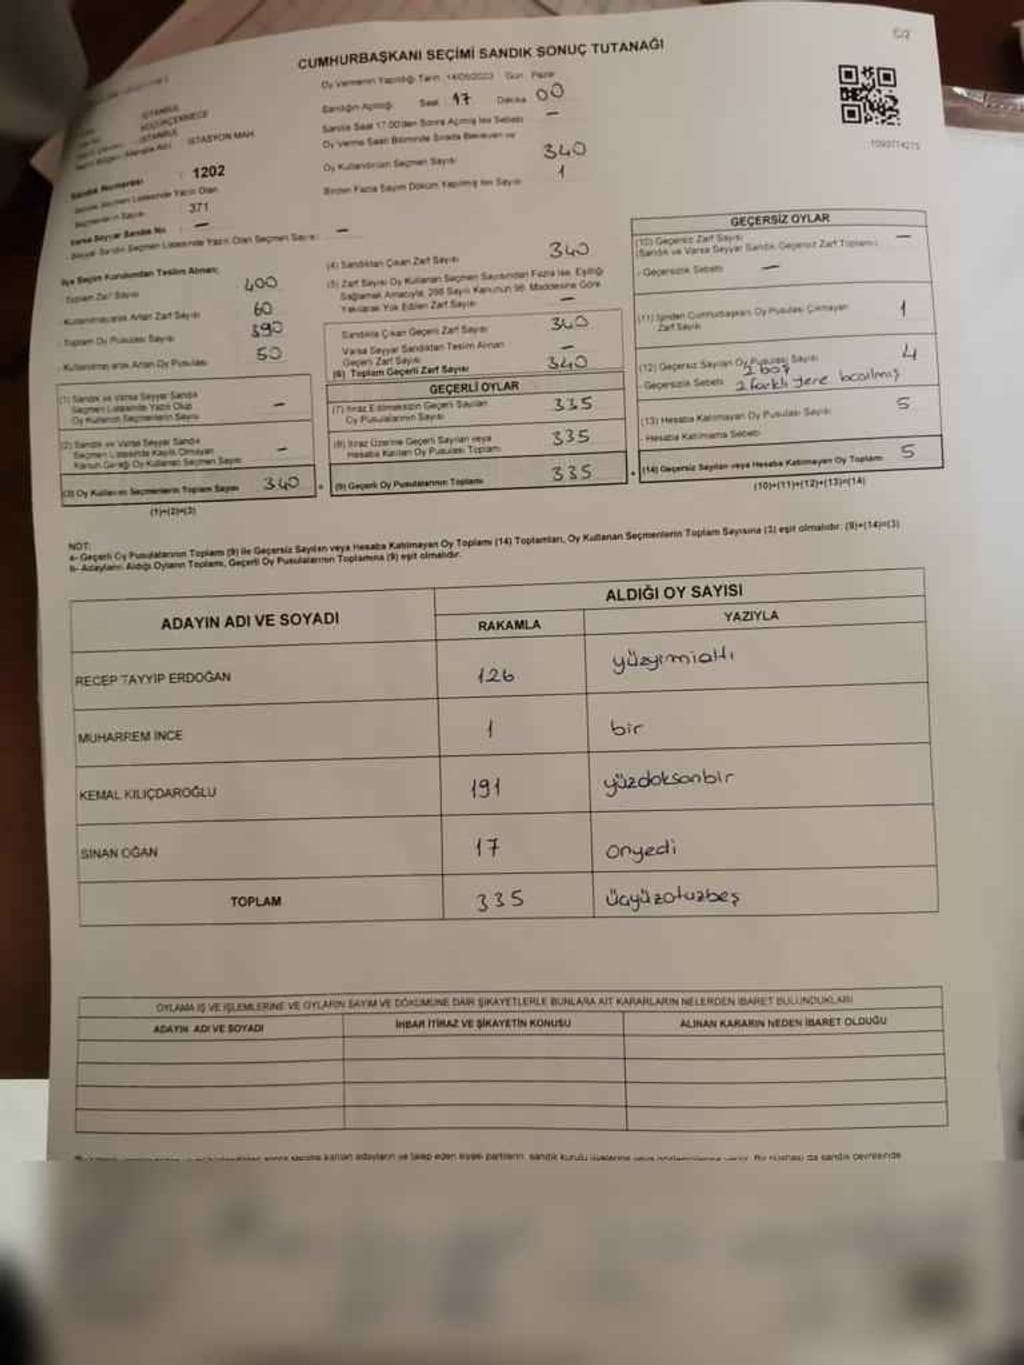 C/2
CUMHURBAŞKANI SEÇİMİ SANDIK SONUÇ TUTANAĞI
Oy Vermenin Yapıldığı Tarih 14/05/2023 Gün Pazar
Sandığın Açılışı Saat 17 Dakika 00
Sandık Saat 17.00'den Sonra Açılmış İse Sebebi —
Oy Verme Saati Bitiminde Sırada Bekleyen ve
Oy Kullandırılan Seçmen Sayısı 340
Birden Fazla Sayım Döküm Yapılmış İse Sayısı 1
İSTANBUL
KÜÇÜKÇEKMECE
İSTANBUL
İSTASYON MAH.
Sandık Numarası : 1202
Sandık Seçmen Listesinde Yazılı Olan
Seçmenlerin Sayısı 371
Varsa Seyyar Sandık No : —
Seyyar Sandık Seçmen Listesinde Yazılı Olan Seçmen Sayısı —
1093774275
İlçe Seçim Kurulundan Teslim Alınan;
Toplam Zarf Sayısı 400
- Kullanılmayarak Artan Zarf Sayısı 60
- Toplam Oy Pusulası Sayısı 390
- Kullanılmayarak Artan Oy Pusulası 50
(1) Sandık ve Varsa Seyyar Sandık
Seçmen Listesinde Yazılı Olup
Oy Kullanan Seçmenlerin Sayısı —
(2) Sandık ve Varsa Seyyar Sandık
Seçmen Listesinde Kayıtlı Olmayan
Kanun Gereği Oy Kullanan Seçmen Sayısı —
(3) Oy Kullanan Seçmenlerin Toplam Sayısı 340
(1)+(2)=(3)
(4) Sandıktan Çıkan Zarf Sayısı 340
(5) Zarf Sayısı Oy Kullanan Seçmen Sayısından Fazla İse, Eşitliği
Sağlamak Amacıyla, 298 Sayılı Kanunun 98. Maddesine Göre
Yakılarak Yok Edilen Zarf Sayısı —
Sandıkta Çıkan Geçerli Zarf Sayısı 340
Varsa Seyyar Sandıktan Teslim Alınan
Geçerli Zarf Sayısı —
(6) Toplam Geçerli Zarf Sayısı 340
GEÇERLİ OYLAR
(7) İtiraz Edilmeksizin Geçerli Sayılan
Oy Pusulalarının Sayısı 335
(8) İtiraz Üzerine Geçerli Sayılan veya
Hesaba Katılan Oy Pusulası Toplamı 335
(9) Geçerli Oy Pusulalarının Toplamı 335
GEÇERSİZ OYLAR
(10) Geçersiz Zarf Sayısı
(Sandık ve Varsa Seyyar Sandık Geçersiz Zarf Toplamı) —
- Geçersizlik Sebebi —
(11) İçinden Cumhurbaşkanı Oy Pusulası Çıkmayan
Zarf Sayısı 1
(12) Geçersiz Sayılan Oy Pusulası Sayısı 4
2 boş
- Geçersizlik Sebebi 2 farklı yere basılmış
(13) Hesaba Katılmayan Oy Pusulası Sayısı 5
- Hesaba Katılmama Sebebi
(14) Geçersiz Sayılan veya Hesaba Katılmayan Oy Toplamı 5
(10)+(11)+(12)+(13)=(14)
NOT:
a- Geçerli Oy Pusulalarının Toplamı (9) ile Geçersiz Sayılan veya Hesaba Katılmayan Oy Toplamı (14) Toplamları, Oy Kullanan Seçmenlerin Toplam Sayısına (3) eşit olmalıdır. (9)+(14)=(3)
b- Adayların Aldığı Oyların Toplamı, Geçerli Oy Pusulalarının Toplamına (9) eşit olmalıdır.
ADAYIN ADI VE SOYADI ALDIĞI OY SAYISI
RAKAMLA YAZIYLA
RECEP TAYYİP ERDOĞAN 126 yüzyirmialtı
MUHARREM İNCE 1 bir
KEMAL KILIÇDAROĞLU 191 yüzdoksanbir
SİNAN OĞAN 17 onyedi
TOPLAM 335 üçyüzotuzbeş
OYLAMA İŞ VE İŞLEMLERİNE VE OYLARIN SAYIM VE DÖKÜMÜNE DAİR ŞİKAYETLERLE BUNLARA AİT KARARLARIN NELERDEN İBARET BULUNDUKLARI
ADAYIN ADI VE SOYADI İHBAR İTİRAZ VE ŞİKAYETİN KONUSU ALINAN KARARIN NEDEN İBARET OLDUĞU